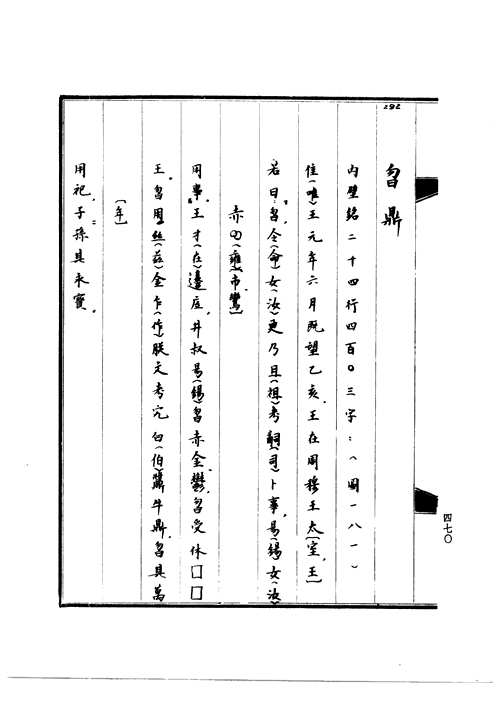 292
曶鼎
内壁銘二十四行四百〇三字：（圖一八一）
隹（唯）王元年六月既望乙亥，王在周穆王太〔室，王〕
若曰：曶，令（命）女（汝）更乃且（祖）考嗣（司）卜事，易（錫）女（汝）
赤⊙（雍）巿、鸞〕
用事。王才（在）邊应，井叔易（錫）曶赤金、鬱，曶受休□□
王。曶用丝（茲）金乍（作）朕文考宄白（伯）𩱧牛鼎。曶其萬
〔年〕
用祀，子＝孫＝其永寶。
四七〇